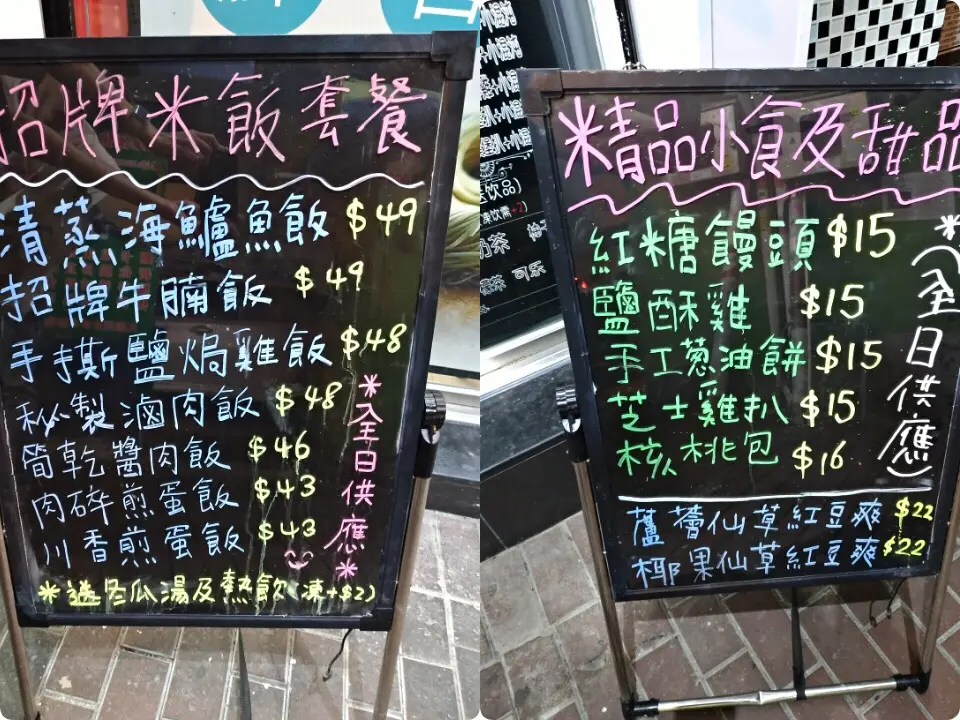 招牌米飯套餐
清蒸海鱸魚飯 $49
招牌牛腩飯 $49
手撕鹽焗雞飯 $48
秘製滷肉飯 $48
筍乾醬肉飯 $46
肉碎煎蛋飯 $43
川香煎蛋飯 $43
*全日供應*
*送冬瓜湯及熱飲(凍+$2)
飲品)
奶茶
可乐
精品小食及甜品
紅糖饅頭 $15
鹽酥雞 $15
手工葱油餅 $15
芝士雞扒 $15
核桃包 $16
*(全日供應)
蘆薈仙草紅豆爽 $22
椰果仙草紅豆爽 $22